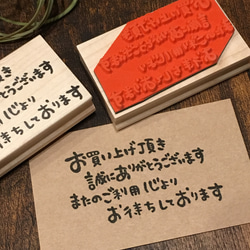 頂き
ございます
心より
待ちしております
お買い上げ頂き
誠にありがとうございます
またのご利用心より
お待ちしております